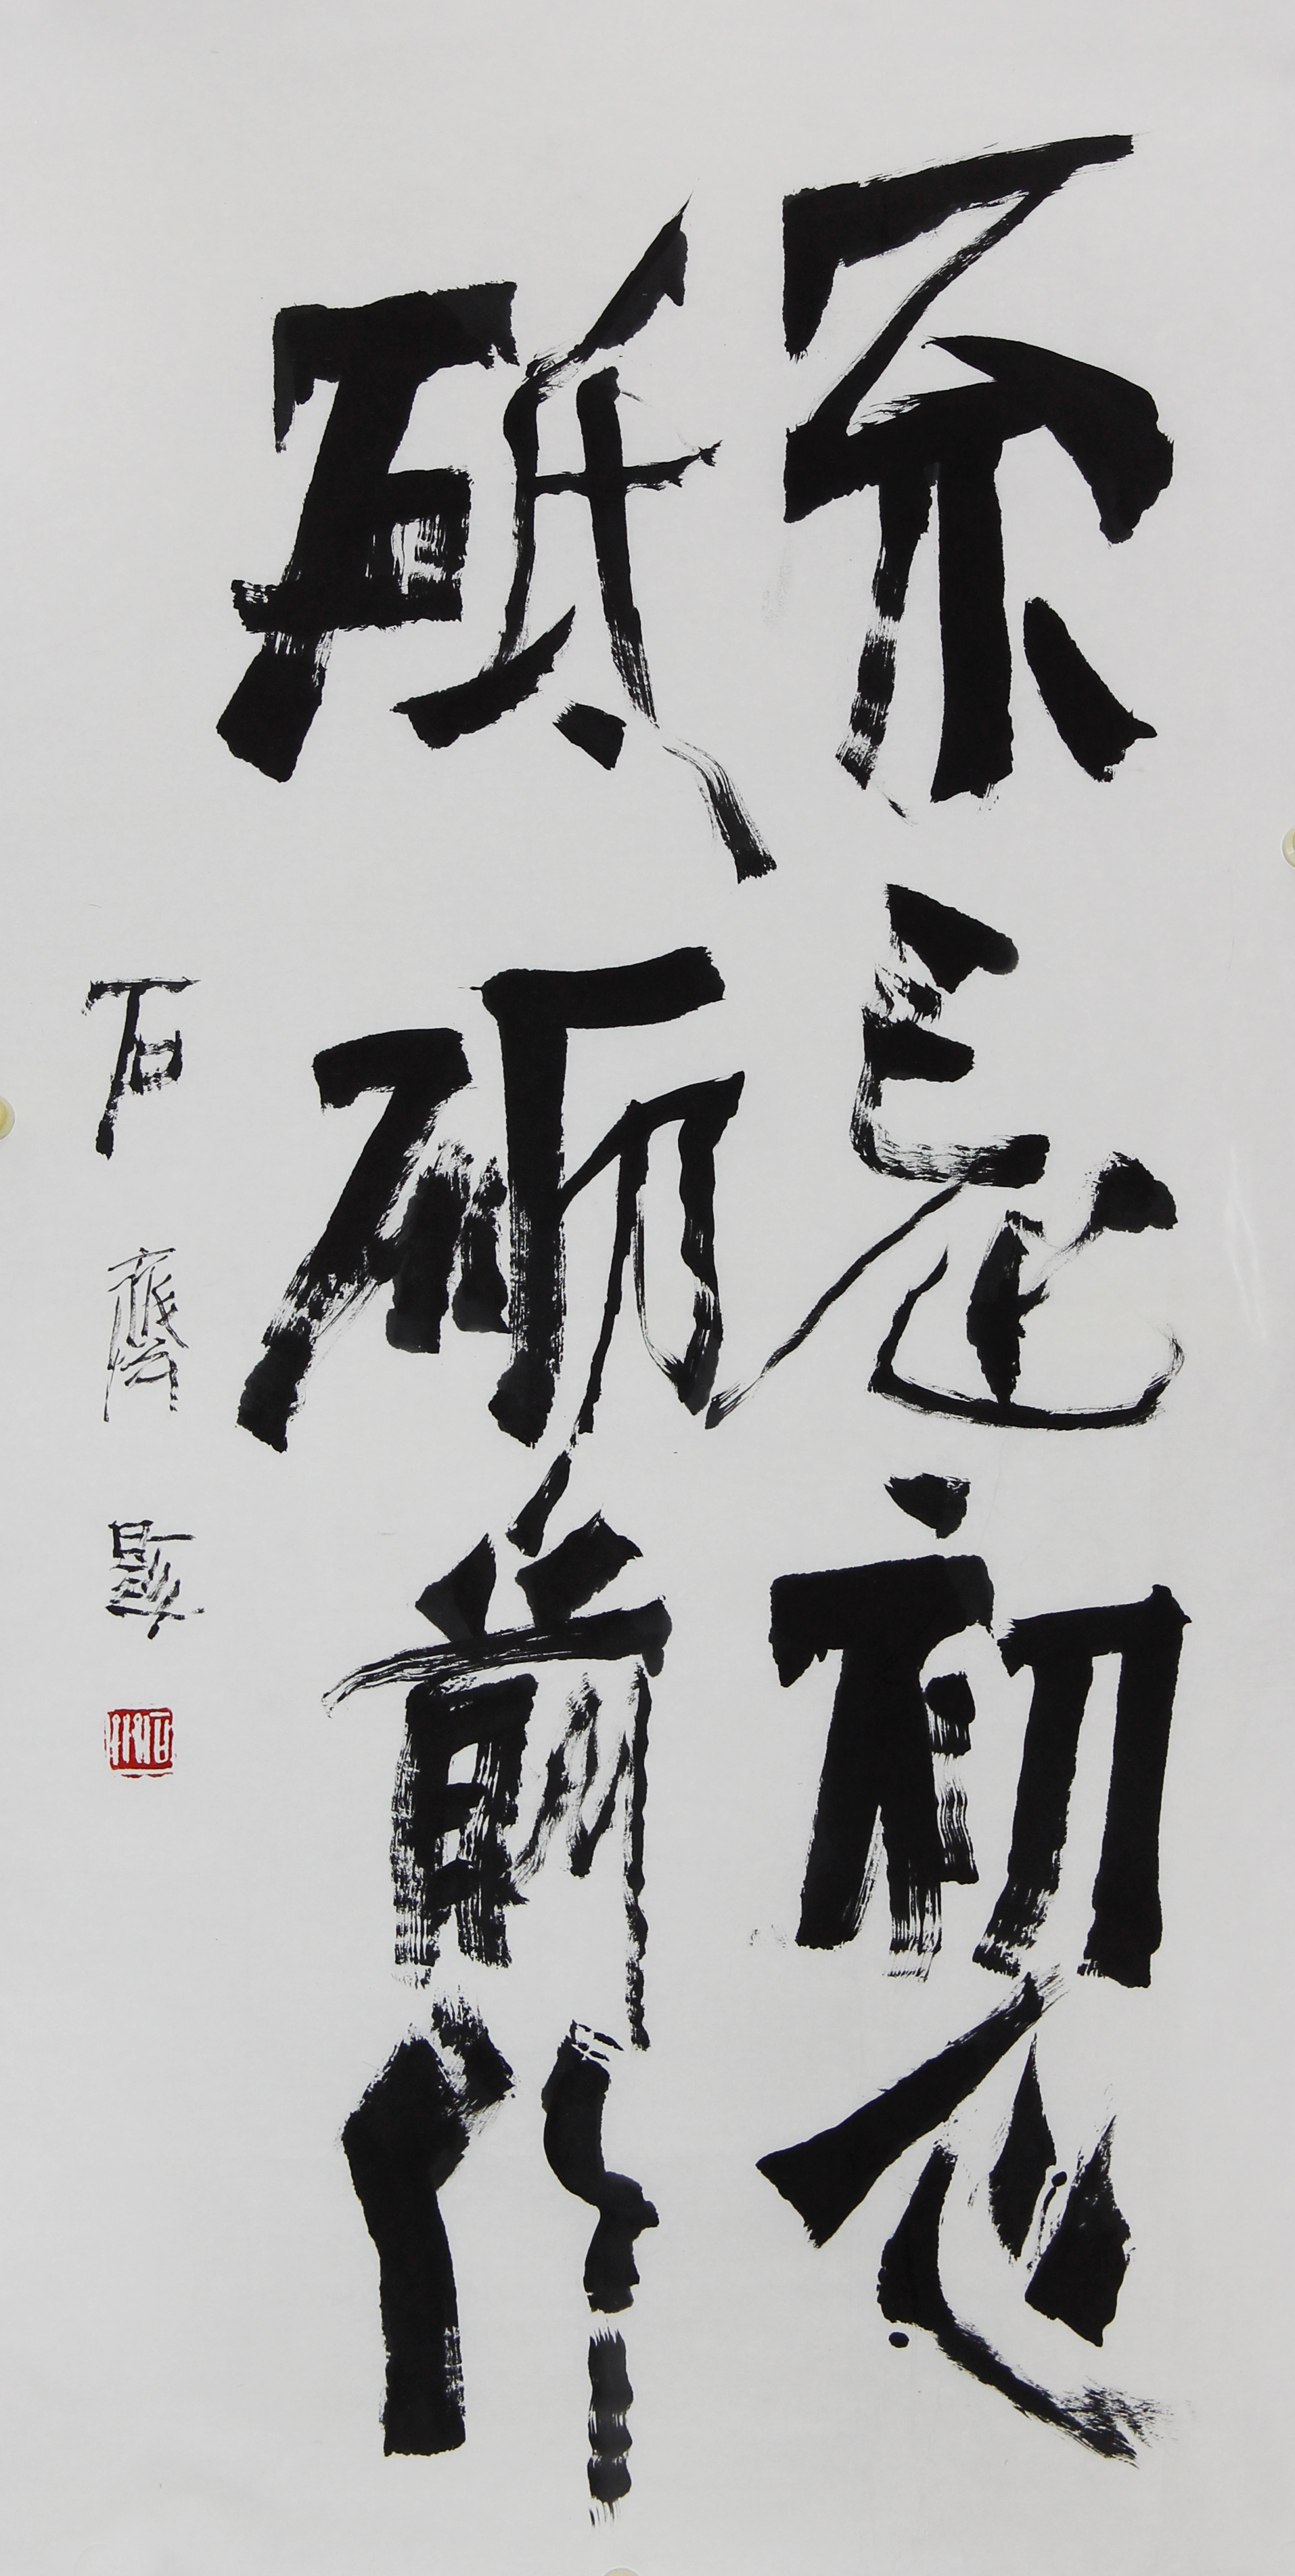 不忘初心
砥砺前行
石